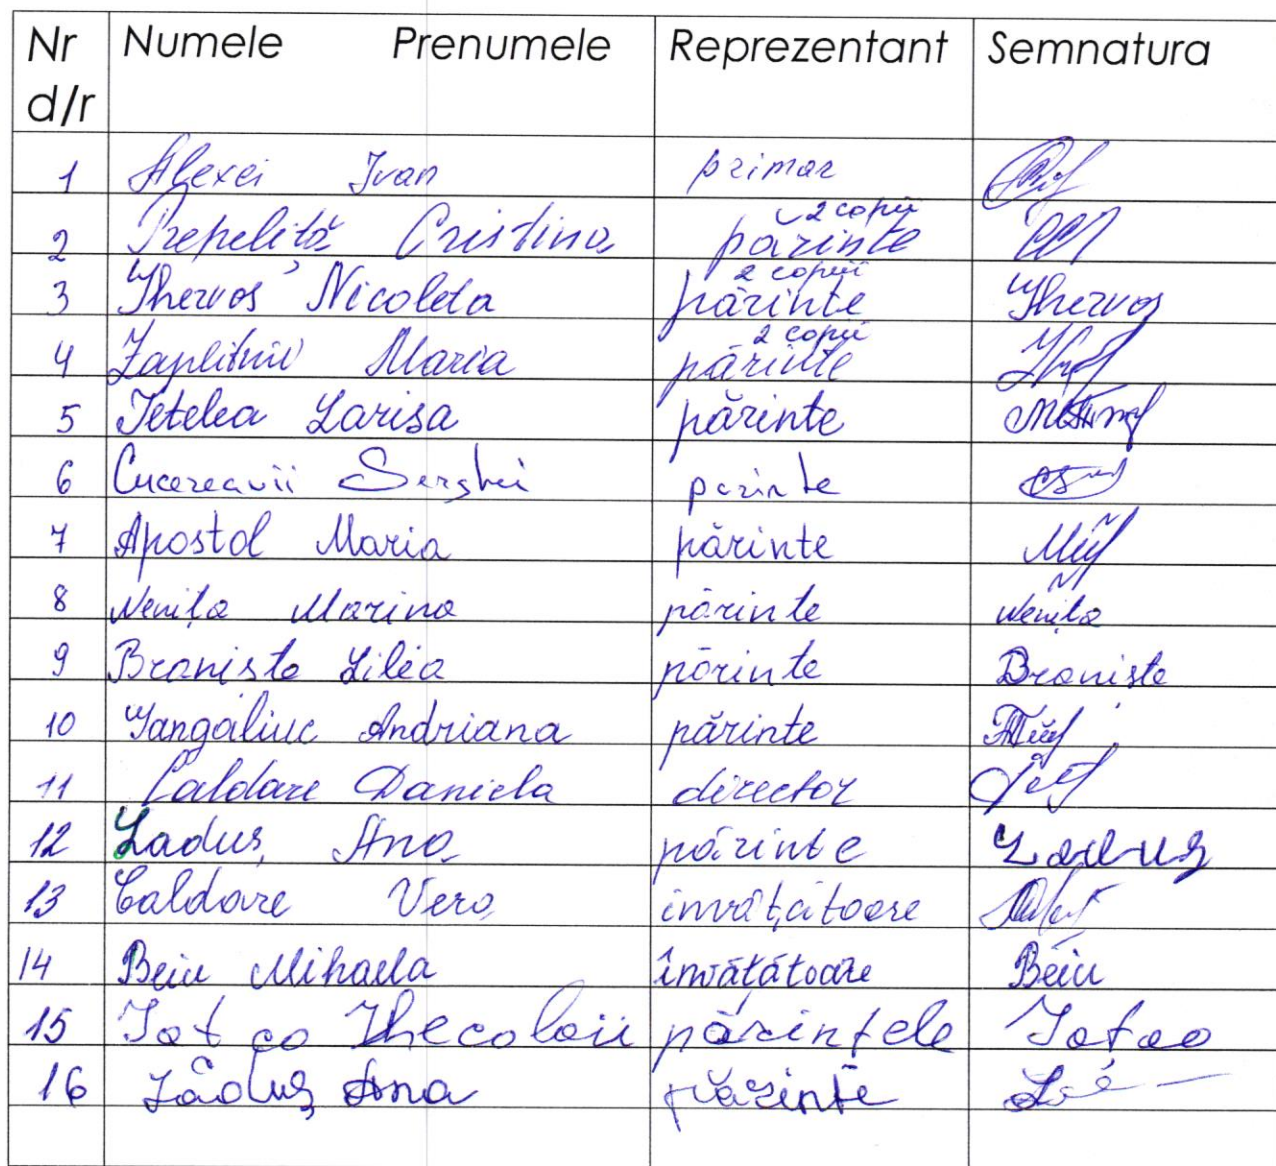 Nr d/r Numele Prenumele Reprezentant Semnatura
1 Alexei Ivan primar
2 Prepeliță Cristina părinte 2 copii
3 Nicoleta părinte 2 copii
4 Maria părinte 2 copii
5 Țetelea Larisa părinte
6 Cucereavîi Serghei parinte
7 Apostol Maria părinte
8 Nenița Marina părinte Nenița
9 Braniste Lilea părinte Braniste
10 Andriana părinte
11 Caldare Daniela director
12 Laduș Ana părinte Laduș
13 Caldare Vera invățătoare
14 Beiu Mihaela învățătoare Beiu
15 părintele
16 Lăduș Ana părinte